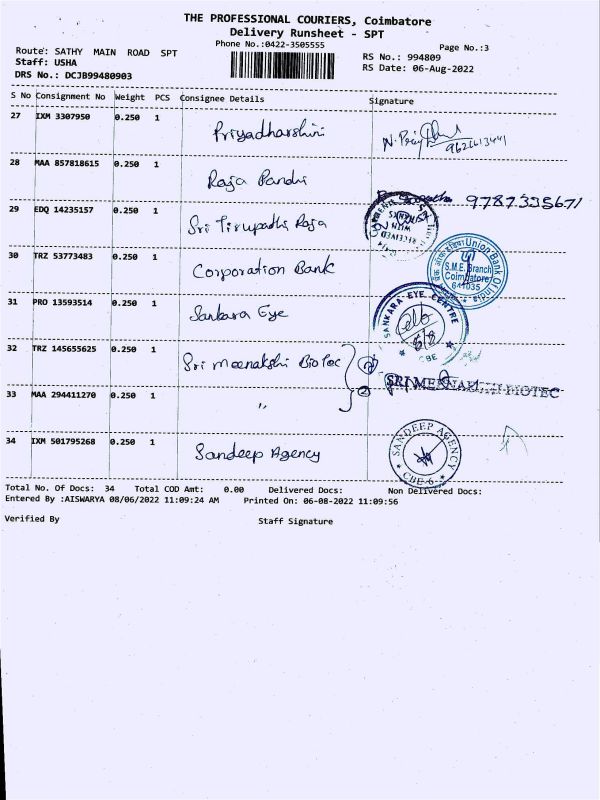 THE PROFESSIONAL COURIERS, Coimbatore
Delivery Runsheet - SPT
Phone No.:0422-3505555
Page No.:3
Route: SATHY MAIN ROAD SPT
RS No.: 994809
Staff: USHA
RS Date: 06-Aug-2022
DRS No.: DCJB99480903
S No Consignment No Weight PCS Consignee Details Signature
27 IXM 3307950 0.250 1 Priyadharshini
28 MAA 857818615 0.250 1 Raja Pandi 9787335671
29 EDQ 14235157 0.250 1 Sri Tirupathi Raja
RECEIVED
WITH
30 TRZ 53773483 0.250 1 Corporation Bank
Union Bank Of India
S.M.E. Branch
Coimbatore
641035
31 PRO 13593514 0.250 1 Sankara Eye
SANKARA EYE CENTRE
6/8
CBE
32 TRZ 145655625 0.250 1 Sri Meenakshi BioTec
SRI MEENAKSHI BIOTEC
33 MAA 294411270 0.250 1 "
34 IXM 501795268 0.250 1 Sandeep Agency
SANDEEP AGENCY
CBE-6
Total No. Of Docs: 34 Total COD Amt: 0.00 Delivered Docs: Non Delivered Docs:
Entered By :AISWARYA 08/06/2022 11:09:24 AM Printed On: 06-08-2022 11:09:56
Verified By Staff Signature